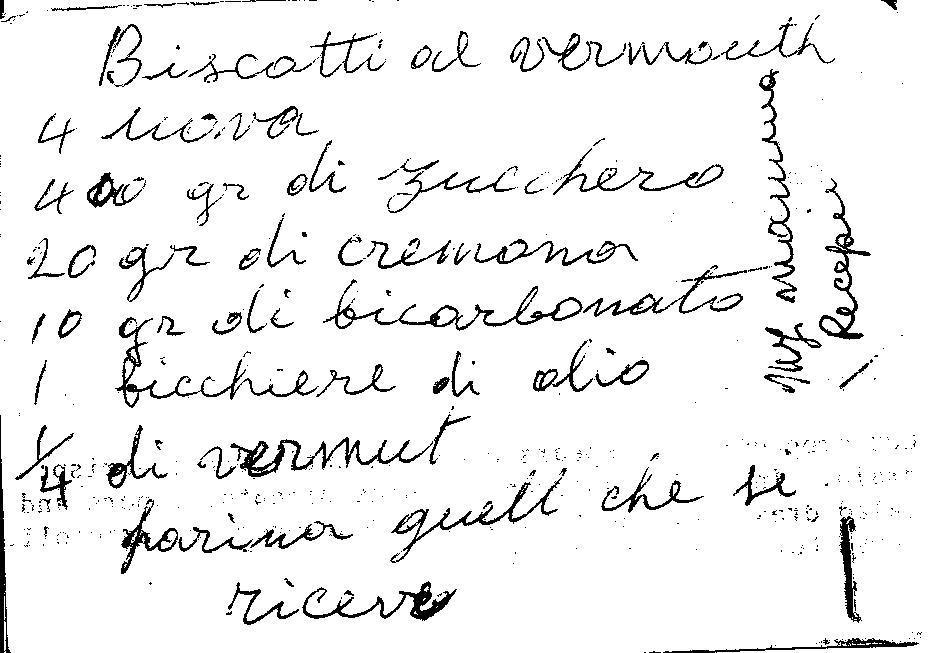 Biscotti al vermouth
4 uova
400 gr di zucchero
20 gr di cremona
10 gr di bicarbonato
1 bicchiere di olio
1/4 di vermut
farina quell che si
riceve
My mamma
Recepi